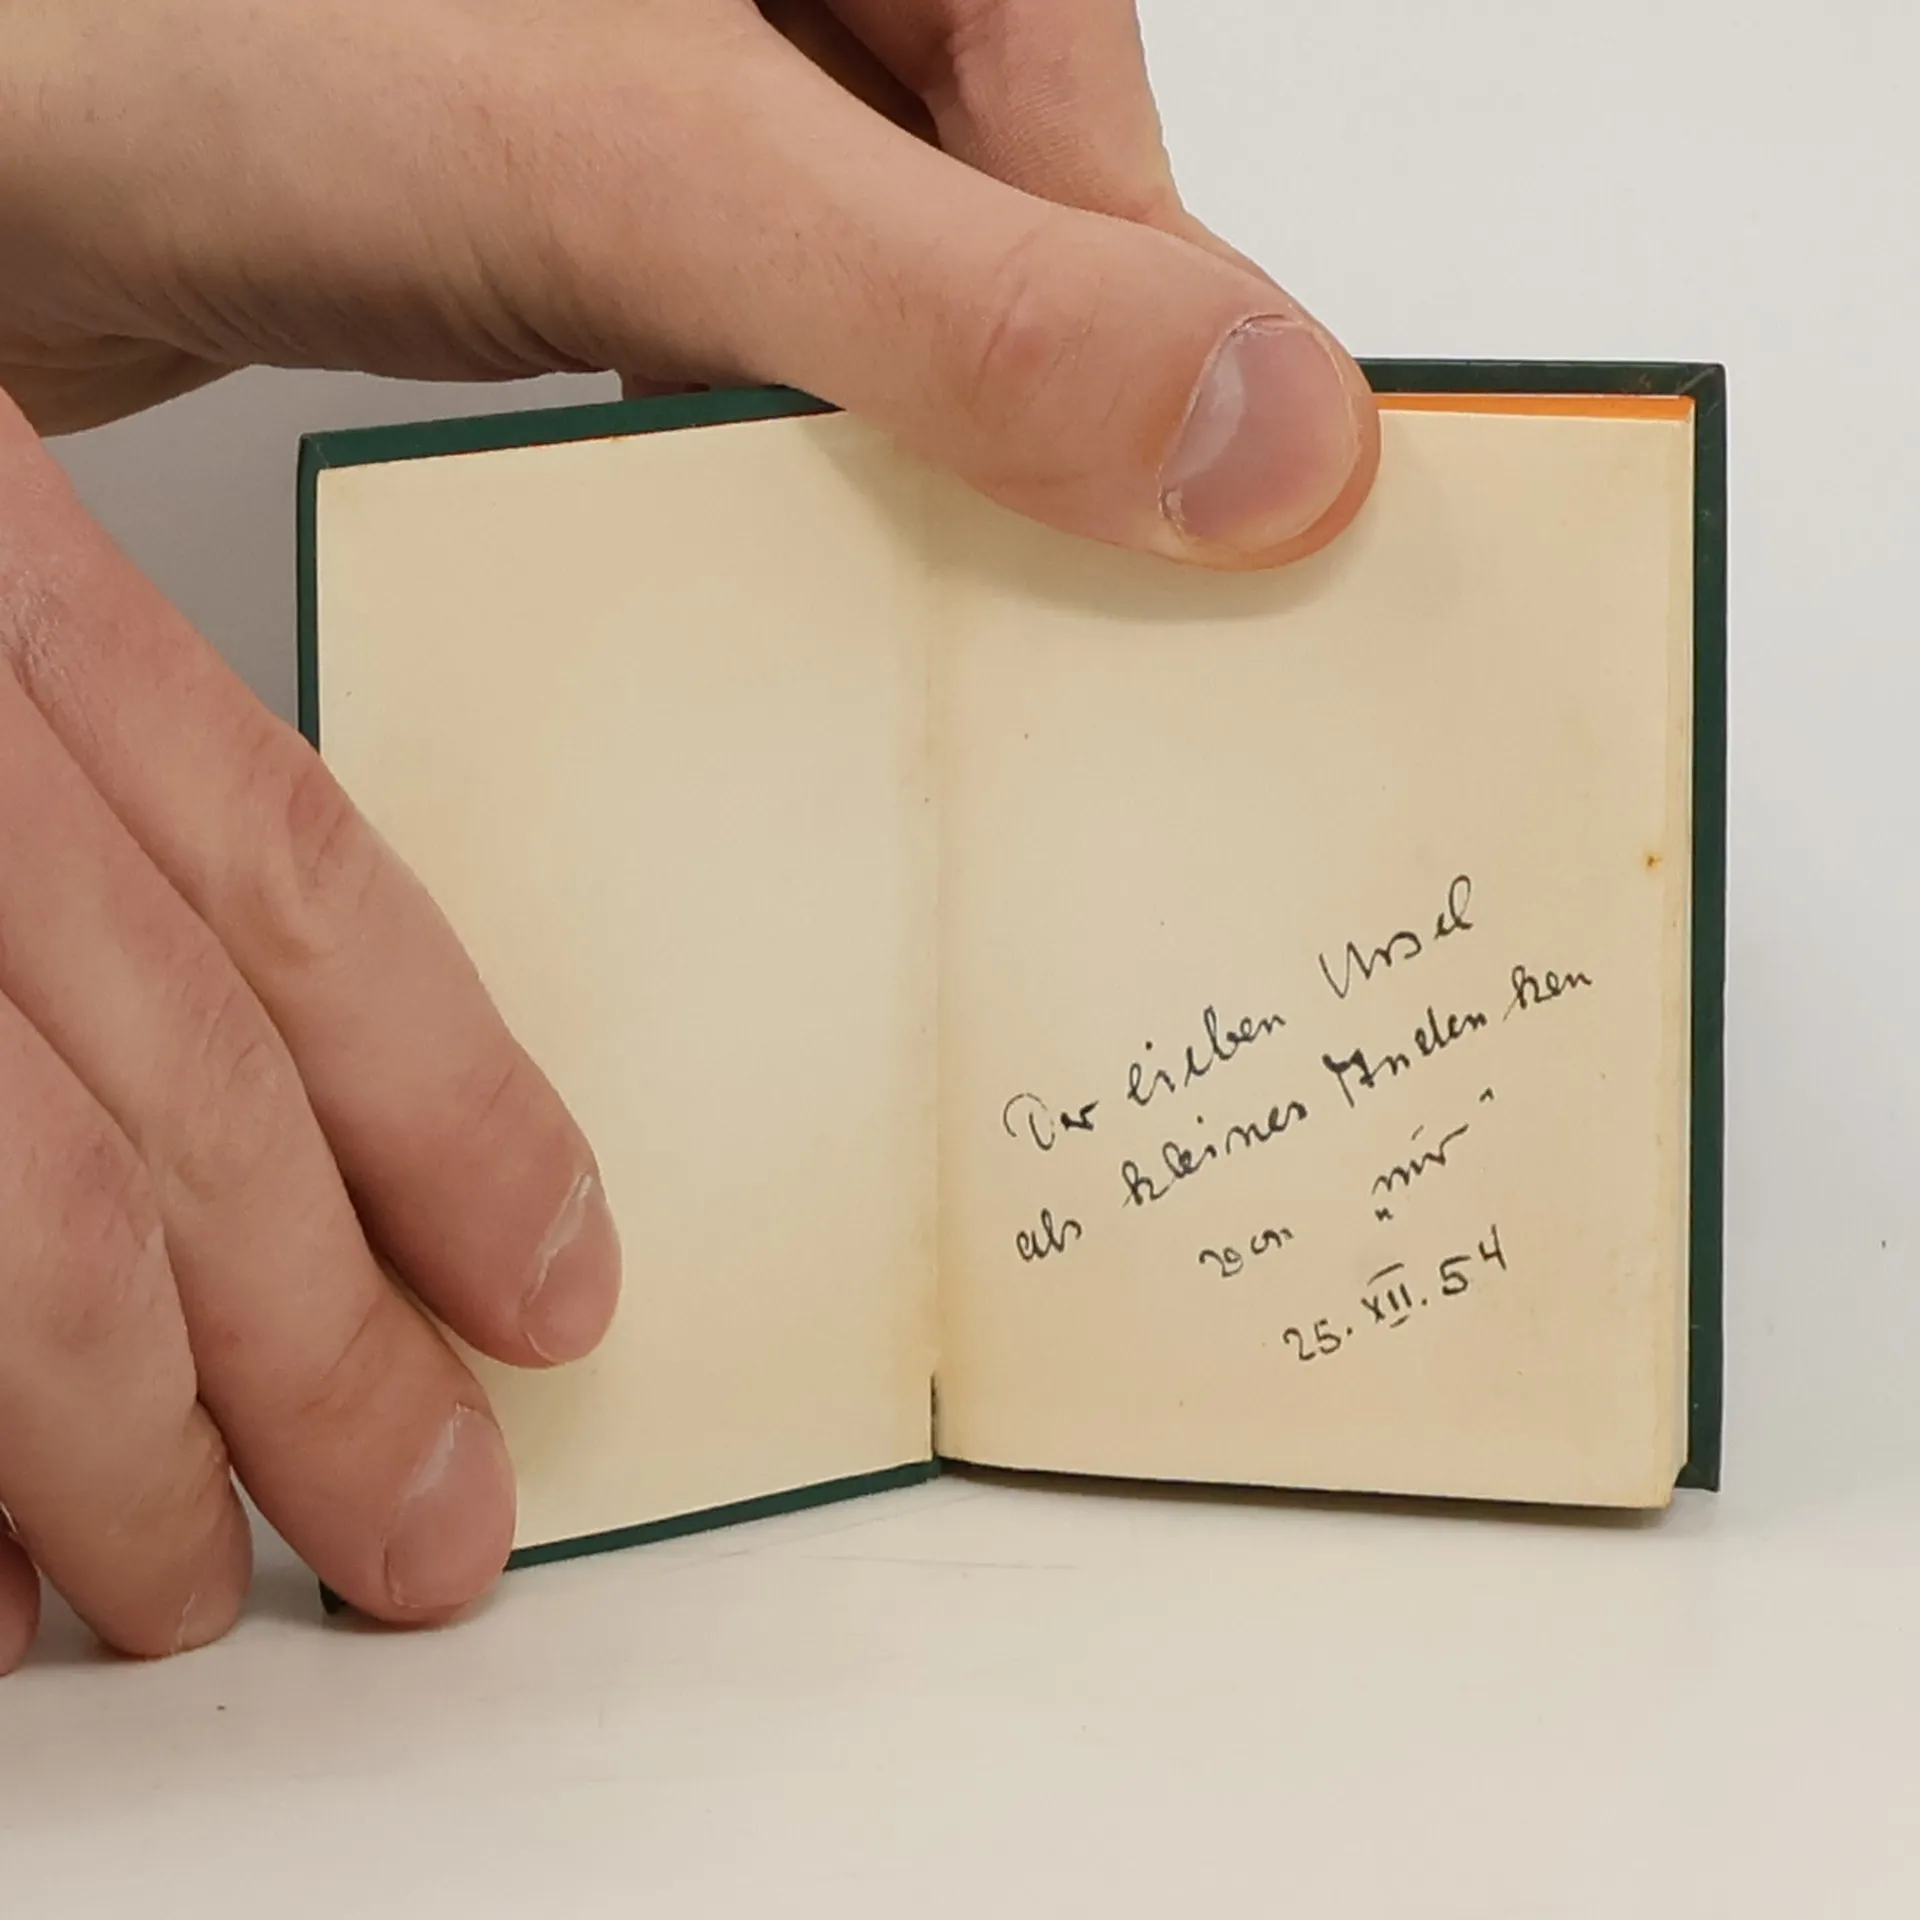 Der lieben Ursel
als kleines Andenken
von „mir“
25. XII. 54